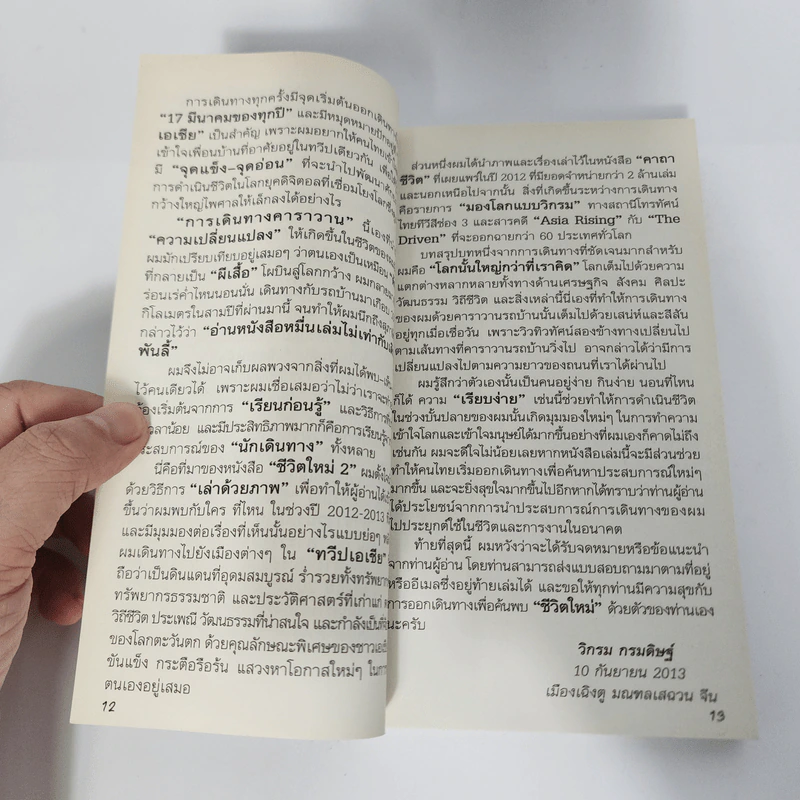 การเดินทางทุกครั้งมีจุดเริ่มต้นออกเดินทาง
“17 มีนาคมของทุกปี” และมีหมุดหมายปักอยู่
เอเชีย” เป็นสำคัญ เพราะผมอยากให้คนไทยเข้า
เข้าใจเพื่อนบ้านที่อาศัยอยู่ในทวีปเดียวกัน เพื่อ
มี “จุดแข็ง–จุดอ่อน” ที่จะนำไปพัฒนาศัก
การดำเนินชีวิตในโลกยุคดิจิตอลที่เชื่อมโยงโลก
กว้างใหญ่ไพศาลให้เล็กลงได้อย่างไร
“การเดินทางคาราวาน” นี้เองที่
“ความเปลี่ยนแปลง” ให้เกิดขึ้นในชีวิตของ
ผมมักเปรียบเทียบอยู่เสมอๆ ว่าตนเองเป็นเหมือน
ที่กลายเป็น “ผีเสื้อ” โผบินสู่โลกกว้าง ผมกลาย
ร่อนเร่ค่ำไหนนอนนั่น เดินทางกับรถบ้านมาเกือบ
กิโลเมตรในสามปีที่ผ่านมานี้ จนทำให้ผมนึกถึง
กล่าวไว้ว่า “อ่านหนังสือหมื่นเล่มไม่เท่ากับ
พันลี้”
ผมจึงไม่อาจเก็บผลพวงจากสิ่งที่ผมได้พบ–
ไว้คนเดียวได้ เพราะผมเชื่อเสมอว่าไม่ว่าเราจะ
ต้องเริ่มต้นจากการ “เรียนก่อนรู้” และวิธีการ
เวลาน้อย และมีประสิทธิภาพมากก็คือการเรียนรู้
ประสบการณ์ของ “นักเดินทาง” ทั้งหลาย
นี่คือที่มาของหนังสือ “ชีวิตใหม่ 2” ผมตั้งใจ
ด้วยวิธีการ “เล่าด้วยภาพ” เพื่อทำให้ผู้อ่านได้
ขึ้นว่าผมพบกับใคร ที่ไหน ในช่วงปี 2012-2013
และมีมุมมองต่อเรื่องที่เห็นนั้นอย่างไรแบบย่อๆ
ผมเดินทางไปยังเมืองต่างๆ ใน “ทวีปเอเชีย”
ถือว่าเป็นดินแดนที่อุดมสมบูรณ์ ร่ำรวยทั้งทรัพยา
ทรัพยากรธรรมชาติ และประวัติศาสตร์ที่เก่าแก่
วิถีชีวิต ประเพณี วัฒนธรรมที่น่าสนใจ และกำลังเป็น
ของโลกตะวันตก ด้วยคุณลักษณะพิเศษของชาวเอเชีย
ขันแข็ง กระตือรือร้น แสวงหาโอกาสใหม่ๆ ในการ
ตนเองอยู่เสมอ
12
ส่วนหนึ่งผมได้นำภาพและเรื่องเล่าไว้ในหนังสือ “คาถา
ชีวิต” ที่เผยแพร่ในปี 2012 ที่มียอดจำหน่ายกว่า 2 ล้านเล่ม
และนอกเหนือไปจากนั้น สิ่งที่เกิดขึ้นระหว่างการเดินทาง
คือรายการ “มองโลกแบบวิกรม” ทางสถานีโทรทัศน์
ไทยทีวีสีช่อง 3 และสารคดี “Asia Rising” กับ “The
Driven” ที่จะออกฉายกว่า 60 ประเทศทั่วโลก
บทสรุปบทหนึ่งจากการเดินทางที่ชัดเจนมากสำหรับ
ผมคือ “โลกนั้นใหญ่กว่าที่เราคิด” โลกเต็มไปด้วยความ
แตกต่างหลากหลายทั้งทางด้านเศรษฐกิจ สังคม ศิลปะ
วัฒนธรรม วิถีชีวิต และสิ่งเหล่านี้นี่เองที่ทำให้การเดินทาง
ของผมด้วยคาราวานรถบ้านนั้นเต็มไปด้วยเสน่ห์และสีสัน
อยู่ทุกเมื่อเชื่อวัน เพราะวิวทิวทัศน์สองข้างทางเปลี่ยนไป
ตามเส้นทางที่คาราวานรถบ้านวิ่งไป อาจกล่าวได้ว่ามีการ
เปลี่ยนแปลงไปตามความยาวของถนนที่เราได้ผ่านไป
ผมรู้สึกว่าตัวเองนั้นเป็นคนอยู่ง่าย กินง่าย นอนที่ไหน
ก็ได้ ความ “เรียบง่าย” เช่นนี้ช่วยทำให้การดำเนินชีวิต
ในช่วงบั้นปลายของผมนั้นเกิดมุมมองใหม่ๆ ในการทำความ
เข้าใจโลกและเข้าใจมนุษย์ได้มากขึ้นอย่างที่ผมเองก็คาดไม่ถึง
เช่นกัน ผมจะดีใจไม่น้อยเลยหากหนังสือเล่มนี้จะมีส่วนช่วย
ทำให้คนไทยเริ่มออกเดินทางเพื่อค้นหาประสบการณ์ใหม่ๆ
มากขึ้น และจะยิ่งสุขใจมากขึ้นไปอีกหากได้ทราบว่าท่านผู้อ่าน
ได้ประโยชน์จากการนำประสบการณ์การเดินทางของผม
ไปประยุกต์ใช้ในชีวิตและการงานในอนาคต
ท้ายที่สุดนี้ ผมหวังว่าจะได้รับจดหมายหรือข้อแนะนำ
จากท่านผู้อ่าน โดยท่านสามารถส่งแบบสอบถามมาตามที่อยู่
หรืออีเมลซึ่งอยู่ท้ายเล่มได้ และขอให้ทุกท่านมีความสุขกับ
การออกเดินทางเพื่อค้นพบ “ชีวิตใหม่” ด้วยตัวของท่านเอง
นะครับ
วิกรม กรมดิษฐ์
10 กันยายน 2013
เมืองเฉิงตู มณฑลเสฉวน จีน
13